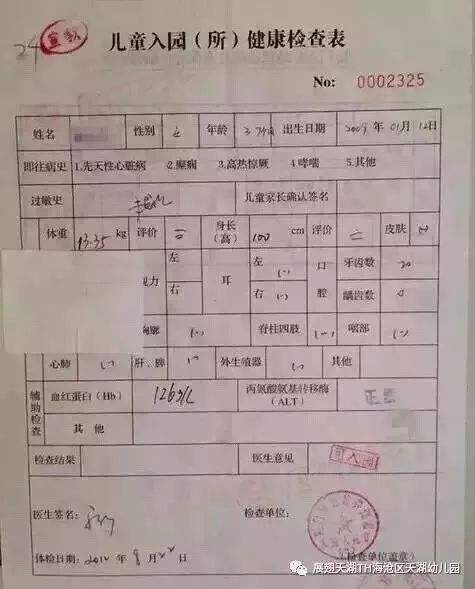 24 宣教
儿童入园(所)健康检查表
No: 0002325
姓名 性别 女 年龄 出生日期 2009 年 01 月 12 日
即往病史 1.先天性心脏病 2.癫痫 3.高热惊厥 4.哮喘 5.其他
过敏史 儿童家长确认签名
体重 13.35 kg 评价 身长(高) 100 cm 评价 皮肤 (-)
左 耳 左 (-) 口腔 牙齿数 20
右 右 (-) 龋齿数 0
(-) 脊柱四肢 (-) 咽部 (-)
心肺 (-) 肝、脾 (-) 外生殖器 (-) 其他
辅助检查 血红蛋白(Hb) 126g/L 丙氨酸氨基转移酶(ALT) 正常
其 他
检查结果 医生意见 可入园
医生签名: 检查单位:
体检日期: 2012 年 8 月 22 (检查单位盖章)
展翅天湖TH海沧区天湖幼儿园